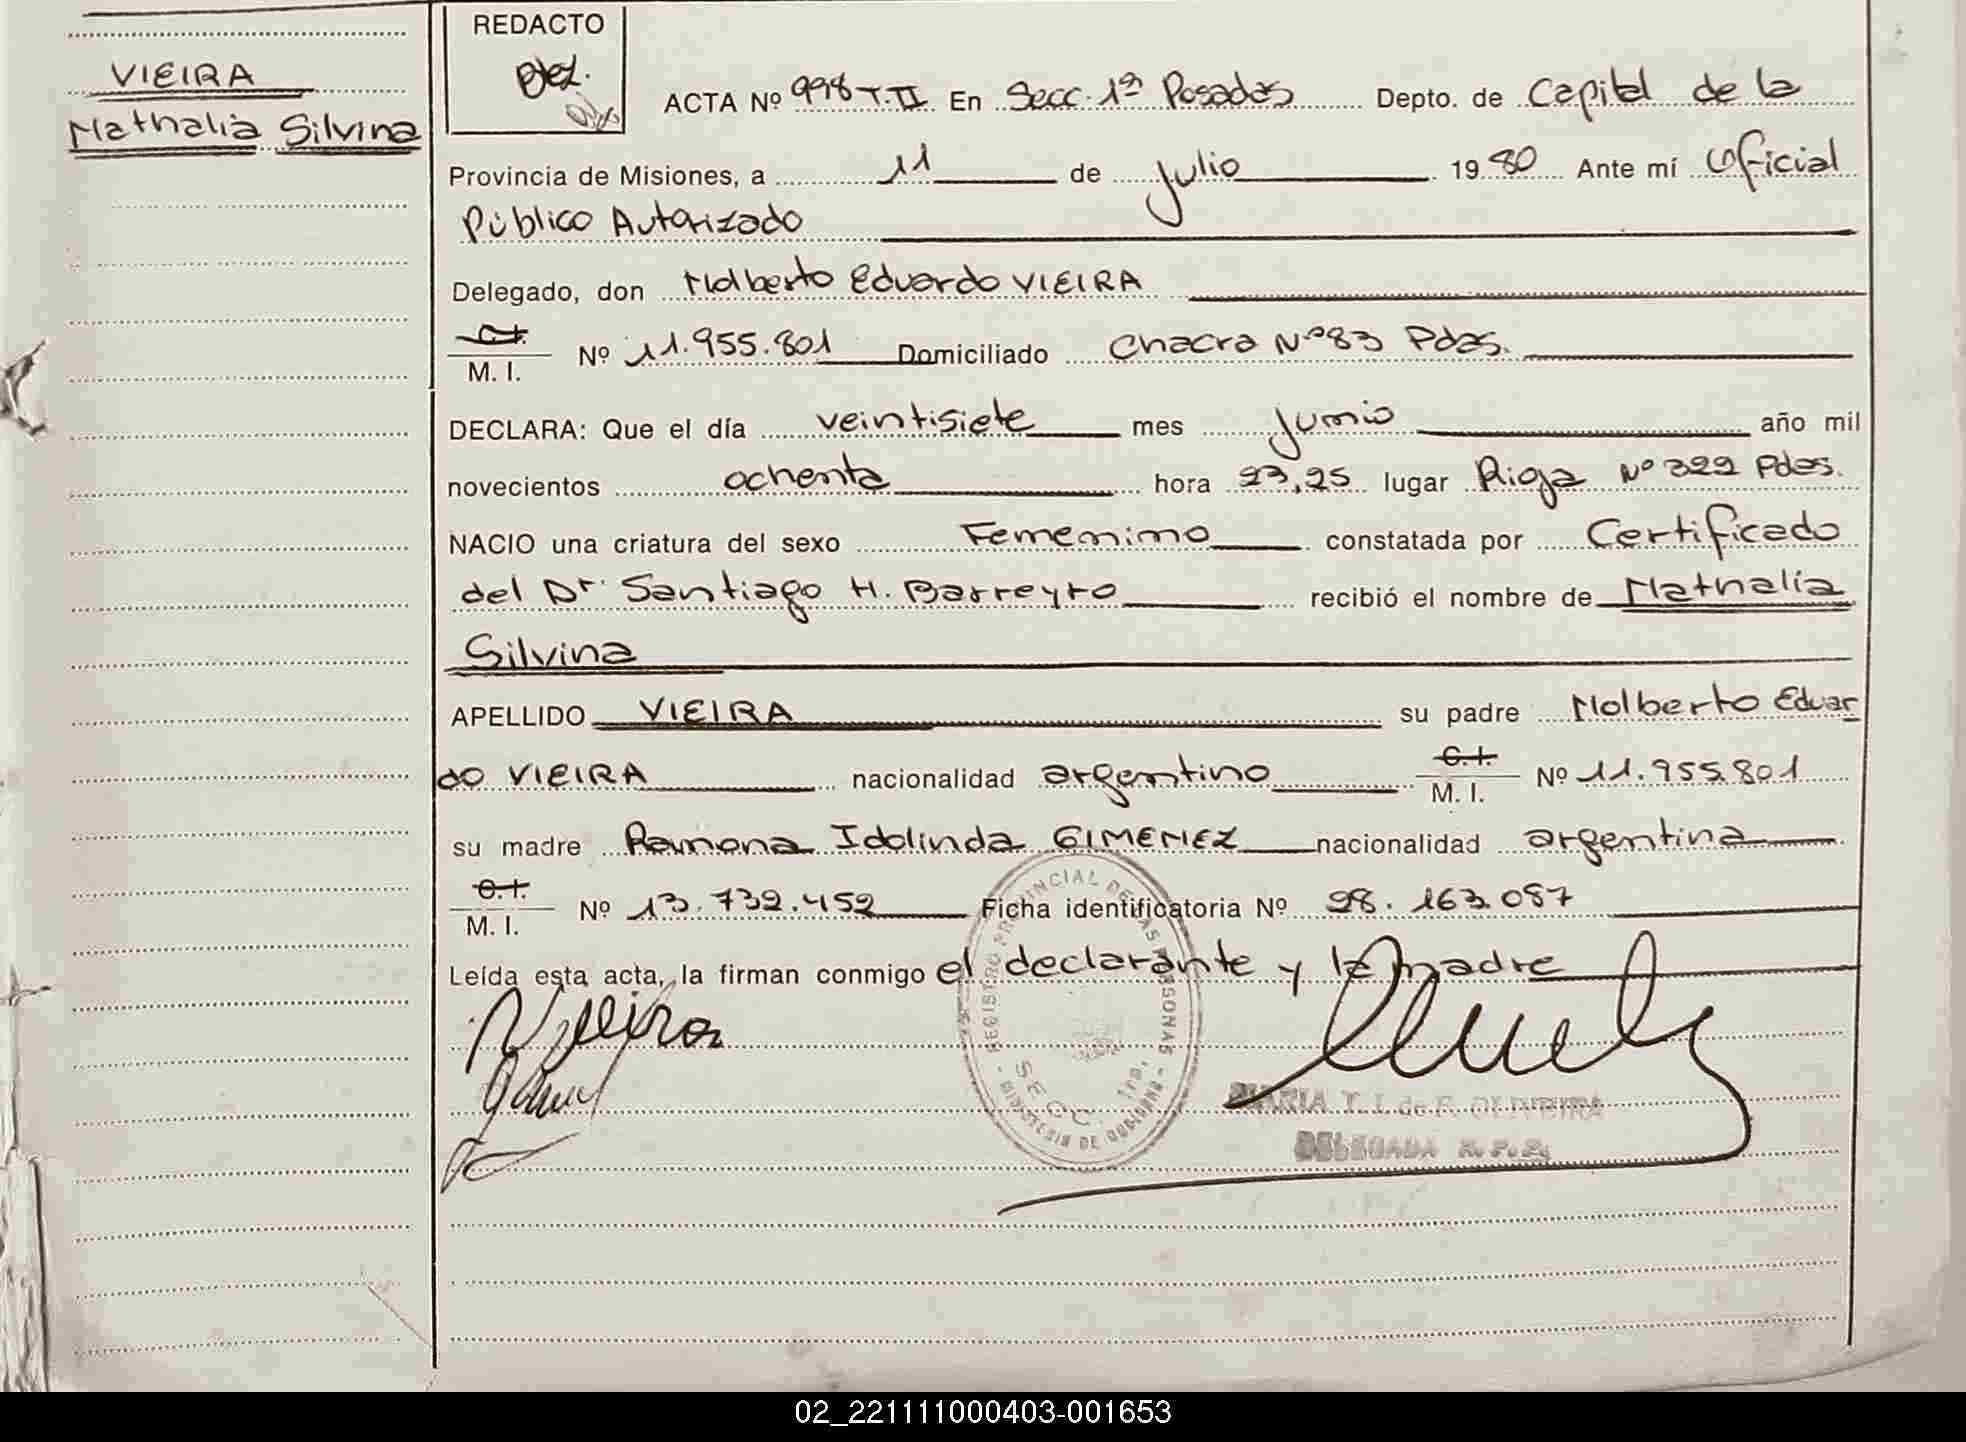 VIEIRA
Nathalia Silvina
REDACTO
ACTA Nº 998 T.II En Secc. 1ª Posadas Depto. de Capital de la
Provincia de Misiones, a 11 de Julio 1980 Ante mí Oficial
Público Autorizado
Delegado, don Nolberto Eduardo VIEIRA
C.I.
M. I. Nº 11.955.801 Domiciliado Chacra Nº 83 Pdas.
DECLARA: Que el día veintisiete mes Junio año mil
novecientos ochenta hora 23,25 lugar Rioja Nº 322 Pdas.
NACIO una criatura del sexo Femenino constatada por Certificado
del Dr. Santiago H. Barreyro recibió el nombre de Nathalia
Silvina
APELLIDO VIEIRA su padre Nolberto Eduar
do VIEIRA nacionalidad argentino C.I. M. I. Nº 11.955.801
su madre Ramona Idolinda GIMENEZ nacionalidad argentina
C.I.
M. I. Nº 13.732.452 Ficha identificatoria Nº 28.163.087
Leída esta acta, la firman conmigo el declarante y la madre
REGISTRO PROVINCIAL DE LAS PERSONAS - MINISTERIO DE GOBIERNO -
SECC. 1ra.
MARIA T. I. de F. OLIVEIRA
DELEGADA R. P. P.
02_221111000403-001653